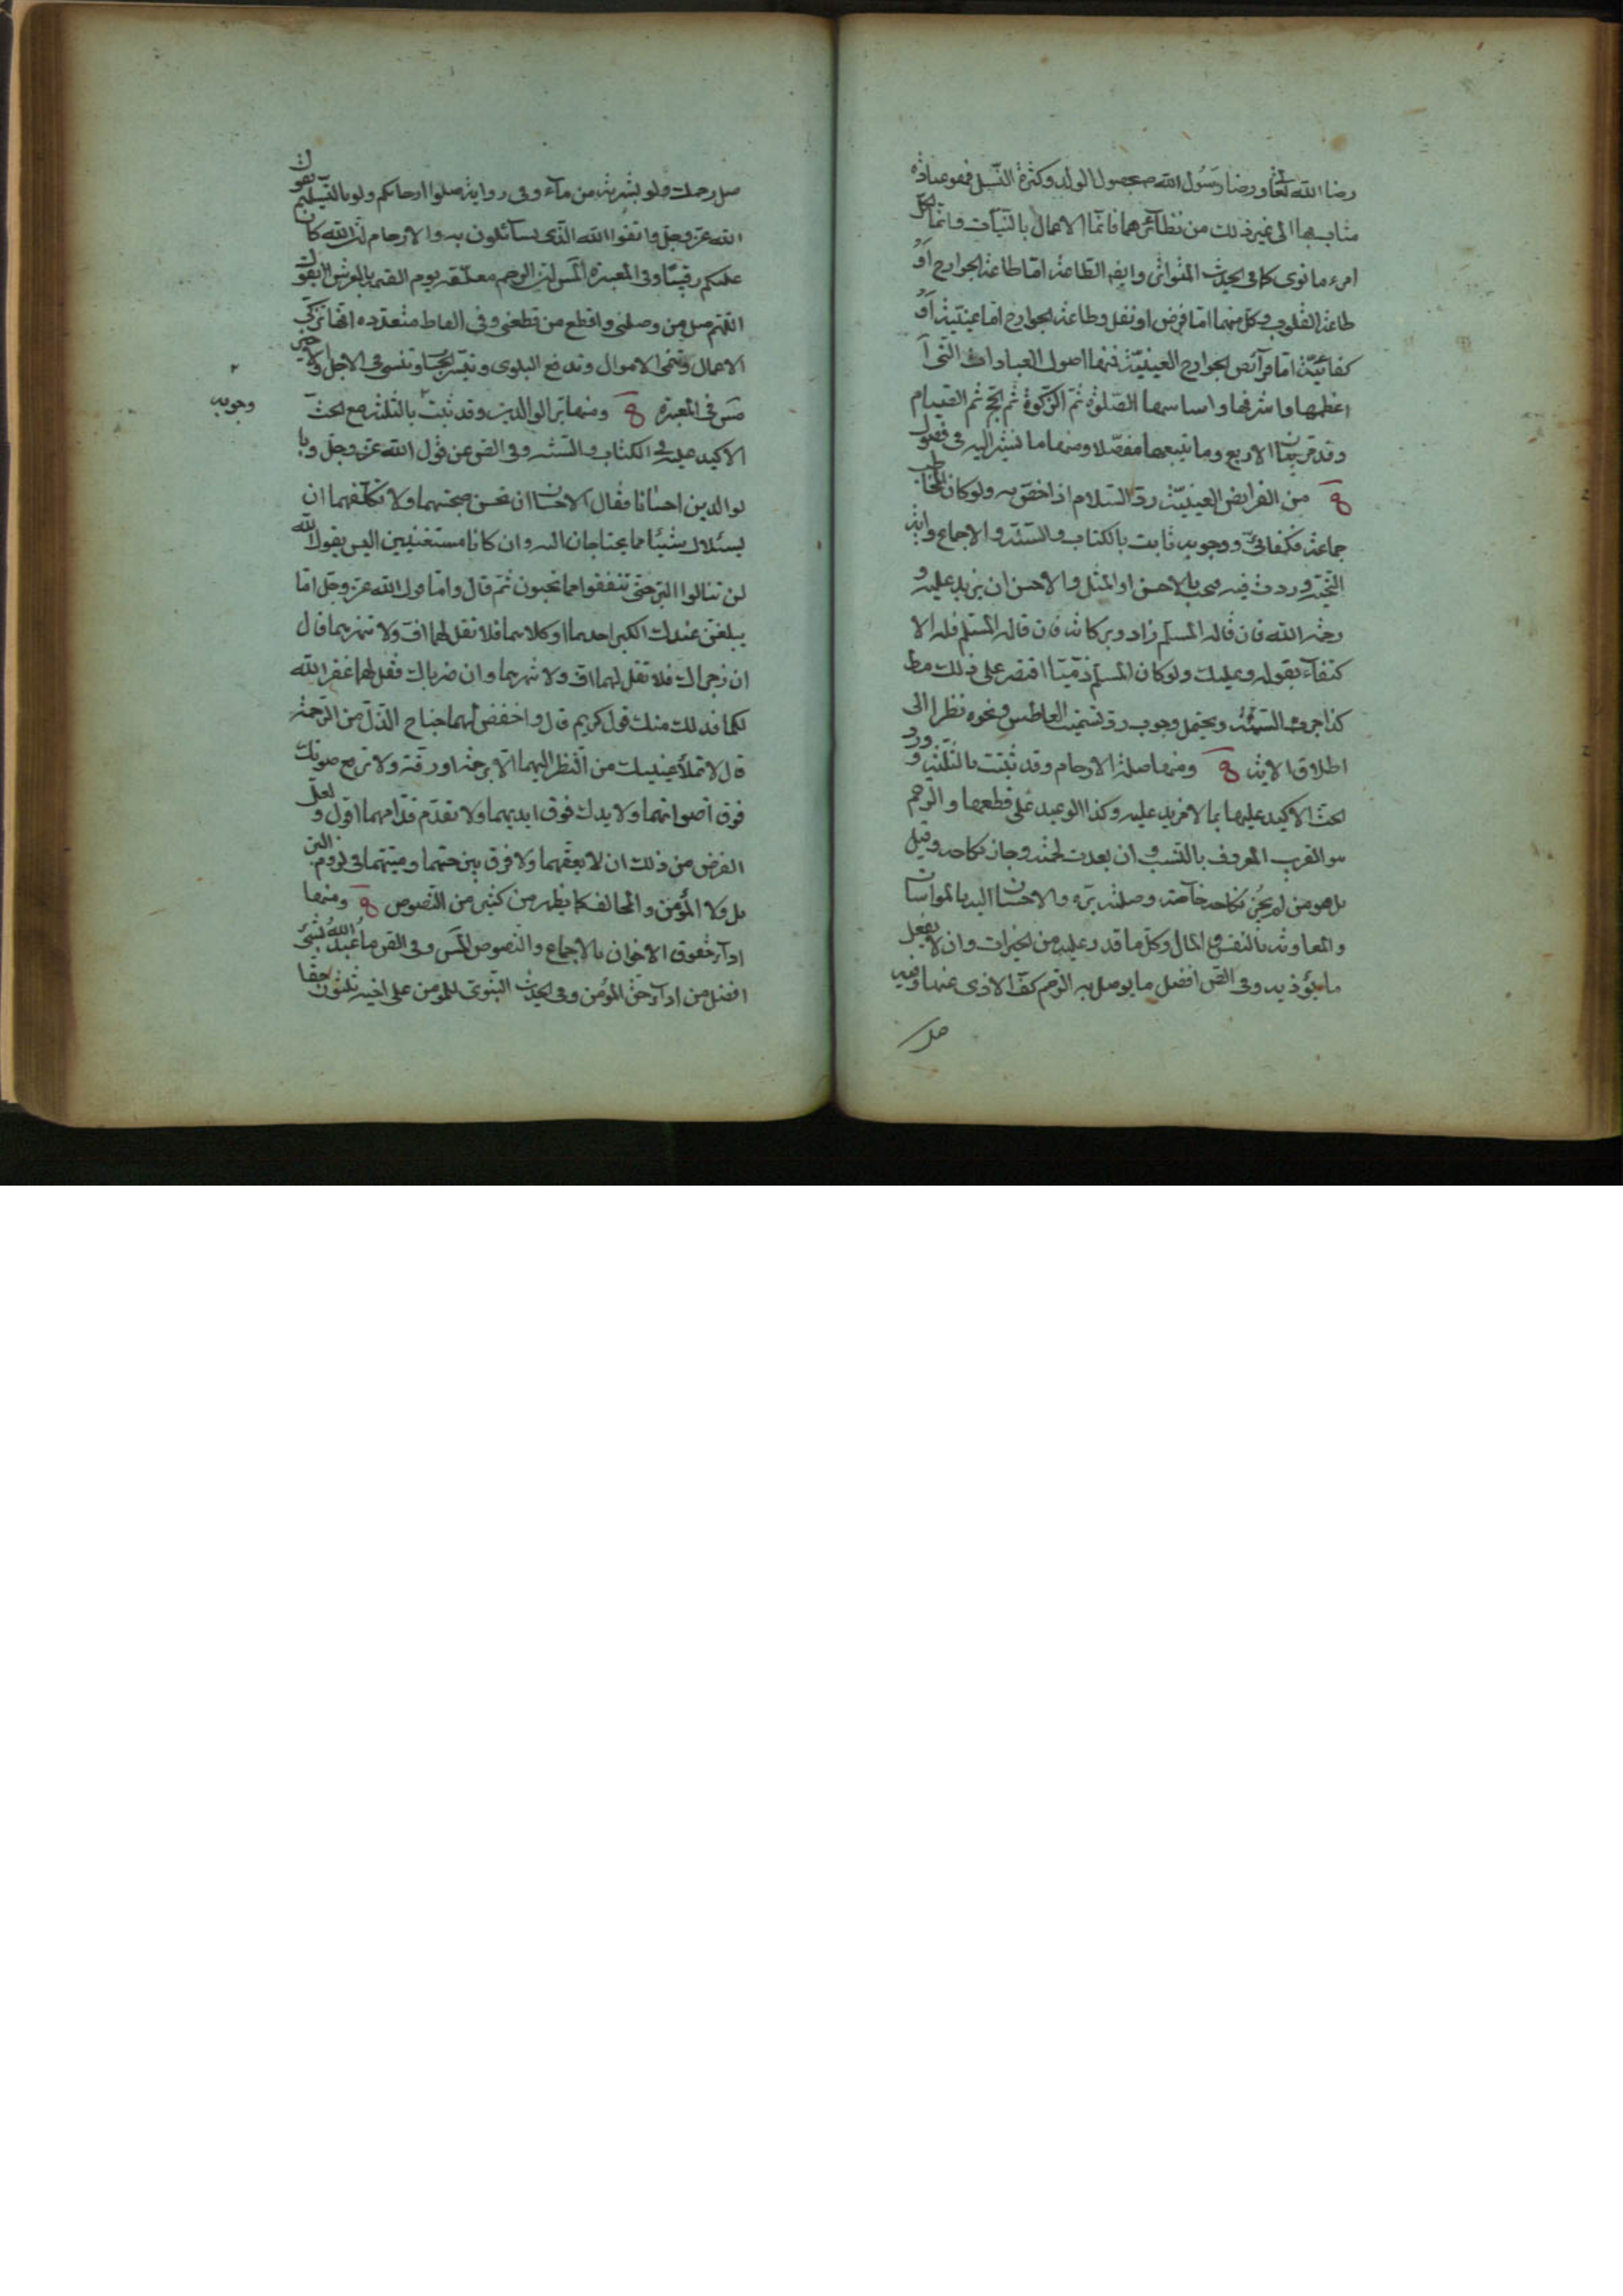 رضا الله تعا ورضا رسول الله ص بحصول الولد وكثرة النسل فهو عبادة
مثاب بها الى غير ذلك من نظائرهما فانما الاعمال بالنيات وانما لكل
امرء ما نوى كما فى الحديث المتواتر وايضا الطاعة اما طاعة الجوارح او
طاعة القلوب وكل منهما اما فرض او نفل وطاعة الجوارح اما عينية او
كفائية اما فرآئض الجوارح العينية فمنها اصول العبادات التى
اعظمها واشرفها واساسها الصلوة ثم الزكوة ثم الحج ثم الصيام
وقد مر بيان الاربع وما يتبعها مفصلا ومنها ما نشير اليه فى فصول
من الفرايض العينية رد السلام اذا خص به ولو كان المخاطب
جماعة فكفائى ووجوبه ثابت بالكتاب والسنة والاجماع واية
التحية وردت فيه بالاحسن او المثل والاحسن ان يزيد عليه و
رحمة الله فان قاله المسلم زاد وبركاته فان قاله المسلم فله الا
كتفاء بقوله وعليك ولو كان المسلم ذميا اقتصر على ذلك
كذا جرت السنة ويحتمل وجوب رد تسميت العاطس ونحوه نظرا الى
اطلاق الاية ومنها صلة الارحام وقد ثبتت بالثلثة وورد
الحث الاكيد عليها بما لا مزيد عليه وكذا الوعيد على قطعها والرحم
هو القريب المعروف بالنسب وان بعدت لحمته وجاز نكاحه وقيل
بل هو من لم يجز نكاحه خاصة وصلته بره والاحسان اليه بالمواسات
والمعاونة بالنفس والمال وكل ما قدر عليه من الخيرات وان لا يفعل
ما يؤذيه وفى النص افضل ما يوصل به الرحم كف الاذى عنها وفيه
صل
صل رحمك ولو بشربة من مآء وفى رواية صلوا ارحامكم ولو بالتسليم يقول
الله عز وجل واتقوا الله الذى تسآئلون به والارحام ان الله كان
عليكم رقيبا وفى المعبرة ان الرحم معلقة يوم القيمة بالعرش يقول
اللهم صل من وصلنى واقطع من قطعنى وفى الفاظ متعددة انها تزكى
الاعمال وتنمى الاموال وتدفع البلوى وتيسر الحساب وتنسى فى الاجل
فى المعبرة ومنها بر الوالدين وقد ثبت بالثلثة مع الحث
وجوبه
الاكيد عليه فى الكتاب والسنة وفى النص عن قول الله عز وجل وبا
لوالدين احسانا فقال الاحسان ان تحسن صحبتهما ولا تكلفهما ان
يسئلاك شيئا مما يحتاجان اليه وان كانا مستغنيين اليس يقول الله
لن تنالوا البر حتى تنفقوا مما تحبون ثم قال واما قول الله عز وجل اما
يبلغن عندك الكبر احدهما او كلاهما فلا تقل لهما اف ولا تنهرهما قال
ان زجراك فلا تقل لهما اف ولا تنهرهما وان ضرباك فقل لهما غفر الله
لكما فذلك منك قول كريم قال واخفض لهما جناح الذل من الرحمة
قال لا تملأ عينيك من النظر اليهما الا برحمة ورقة ولا ترفع صوتك
فوق اصواتهما ولا يدك فوق ايديهما ولا تقدم قدامهما اقول ولعل
الغرض من ذلك ان لا يعقهما ولا فرق بين حيهما وميتهما فى لزوم البر
بل ولا المؤمن والمخالف كما يظهر من كثير من النصوص ومنها
ادآء حقوق الاخوان بالاجماع والنصوص وفى ما عبد الله بشئ
افضل من ادآء حق المؤمن وفى الحديث النبوى للمؤمن على اخيه ثلثون حقا